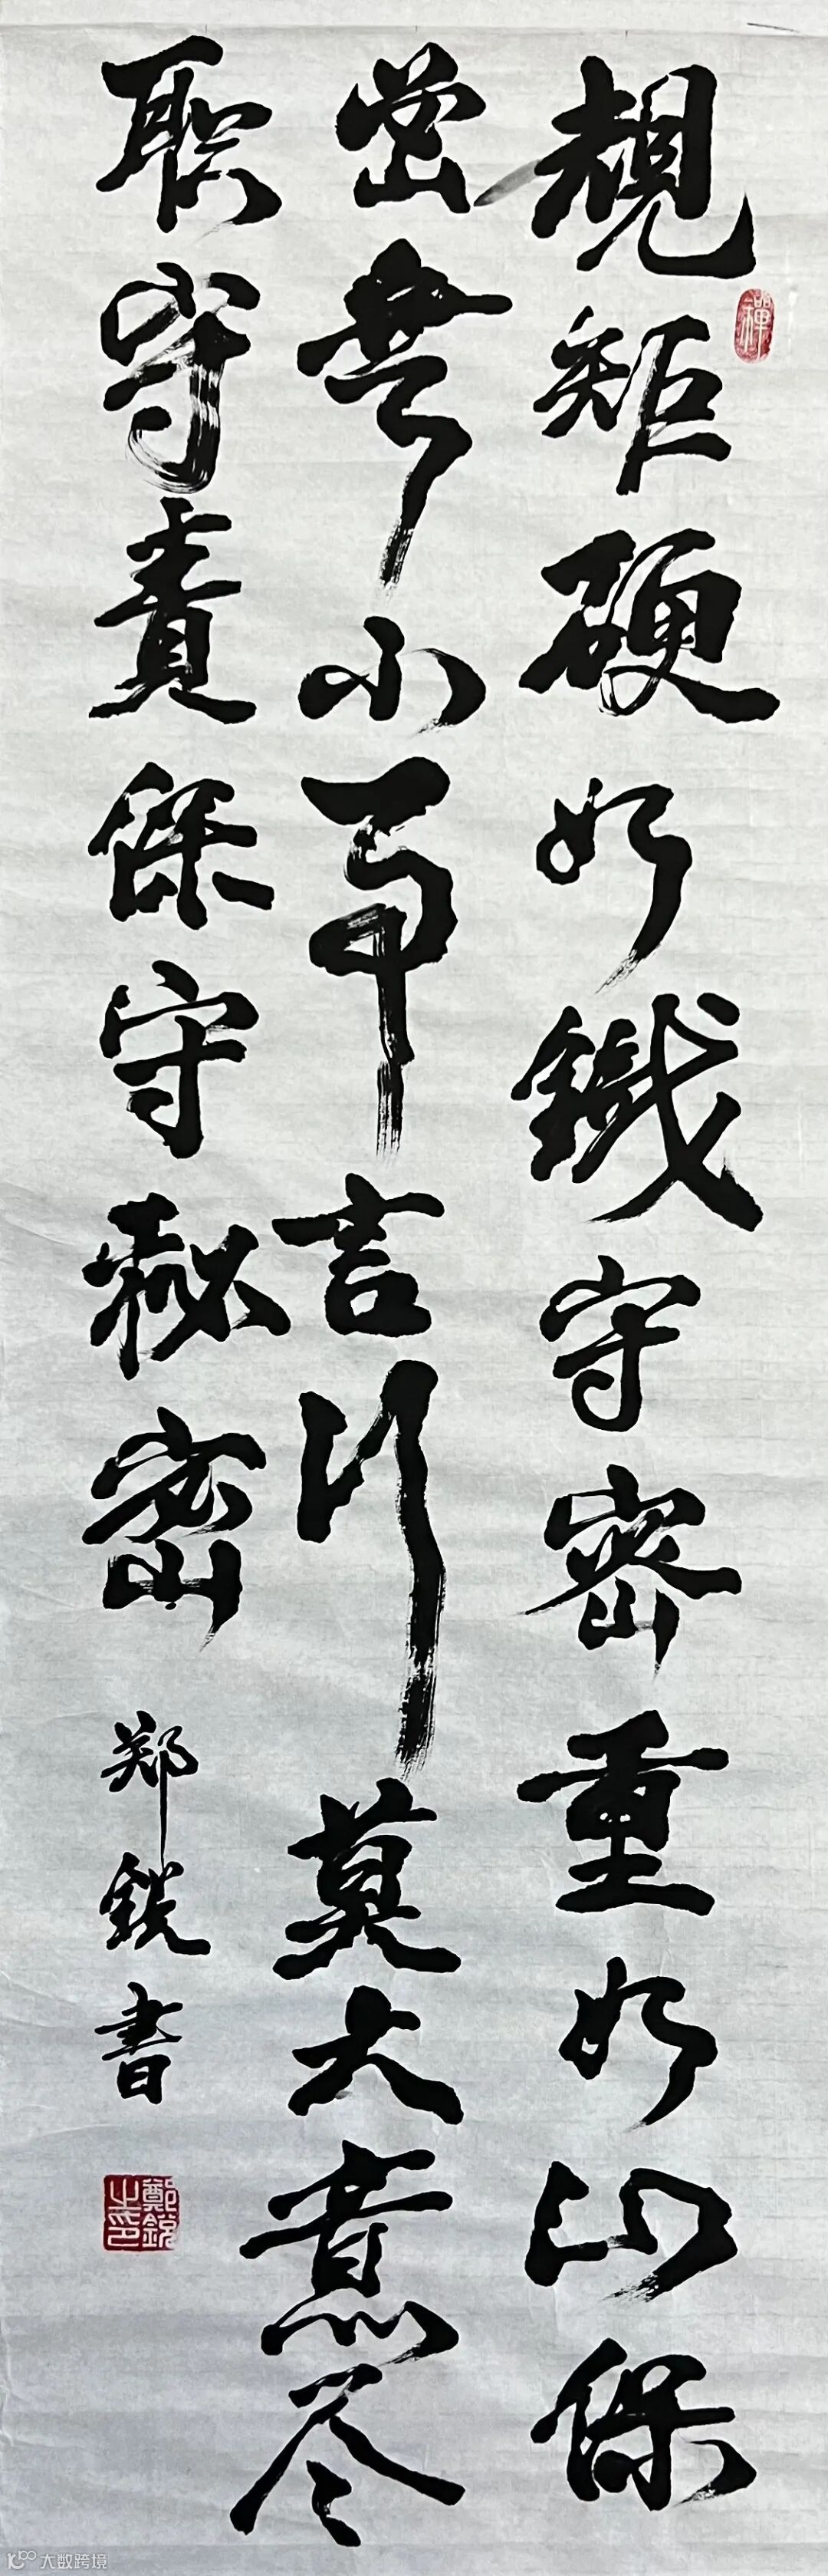 规矩硬如鐵守密重如山保
密無小事言行莫大意尽
职守責保守秘密
郑锐書
禅
鄭銳之印
大数跨境